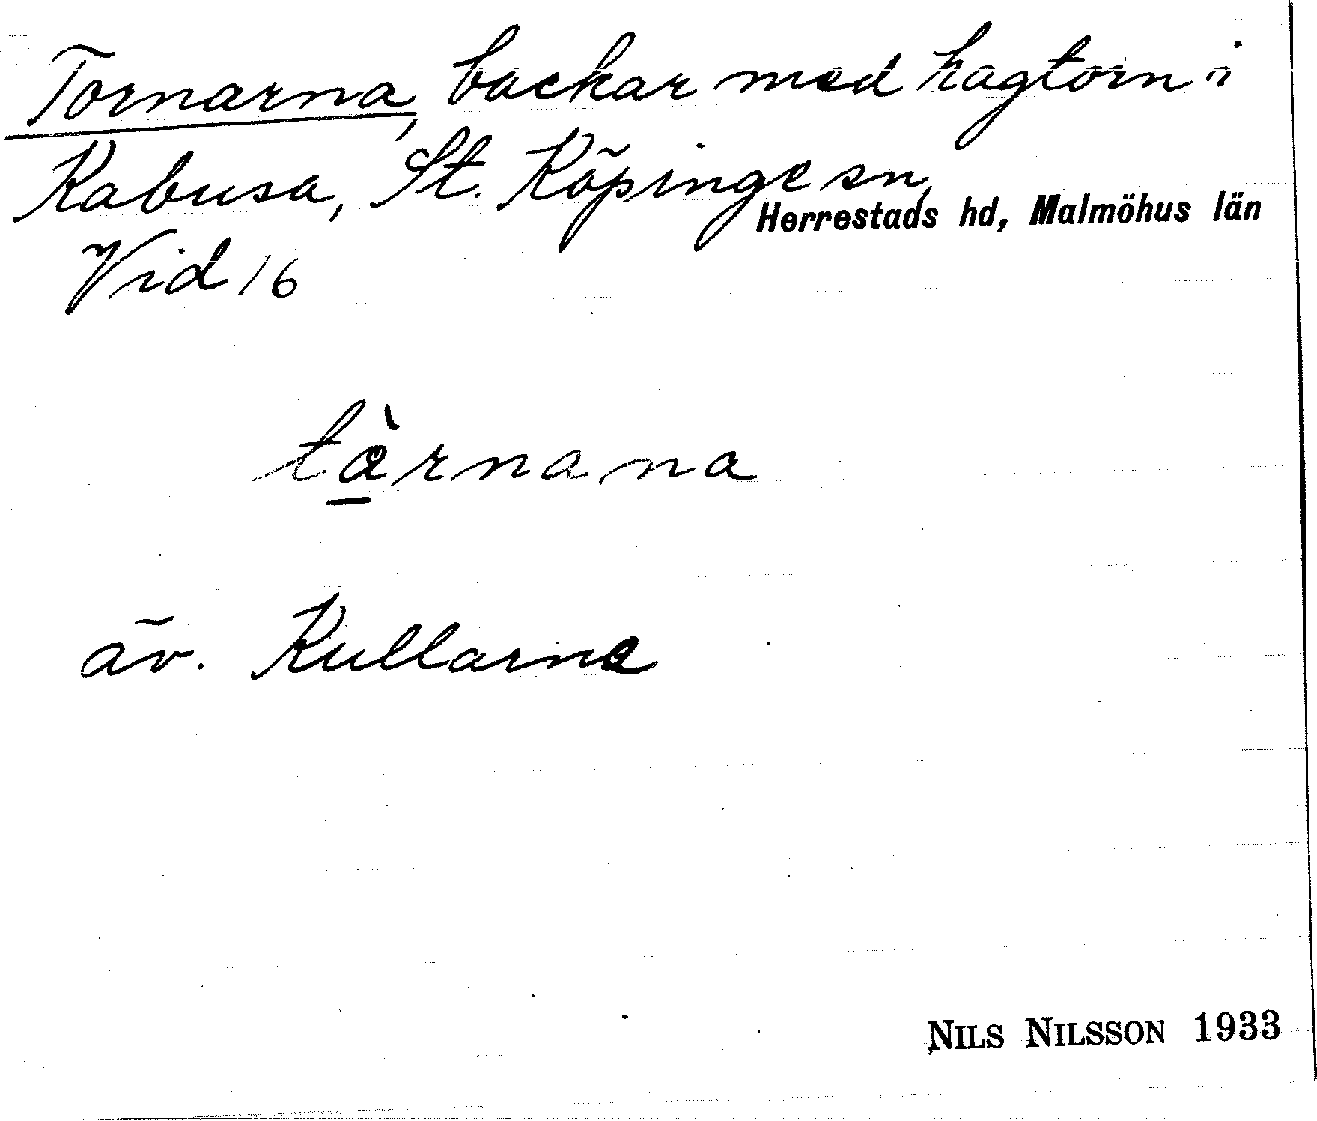 Tornarna, backar med hagtorn i
Kabusa, St. Köpinge sn,
Herrestads hd, Malmöhus län
Vid 16
tàrnana
äv. Kullarna
NILS NILSSON 1933